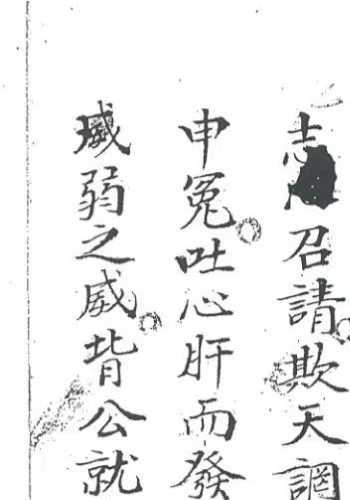 志召請欺天
申冤吐心肝而發
弱之威背公就